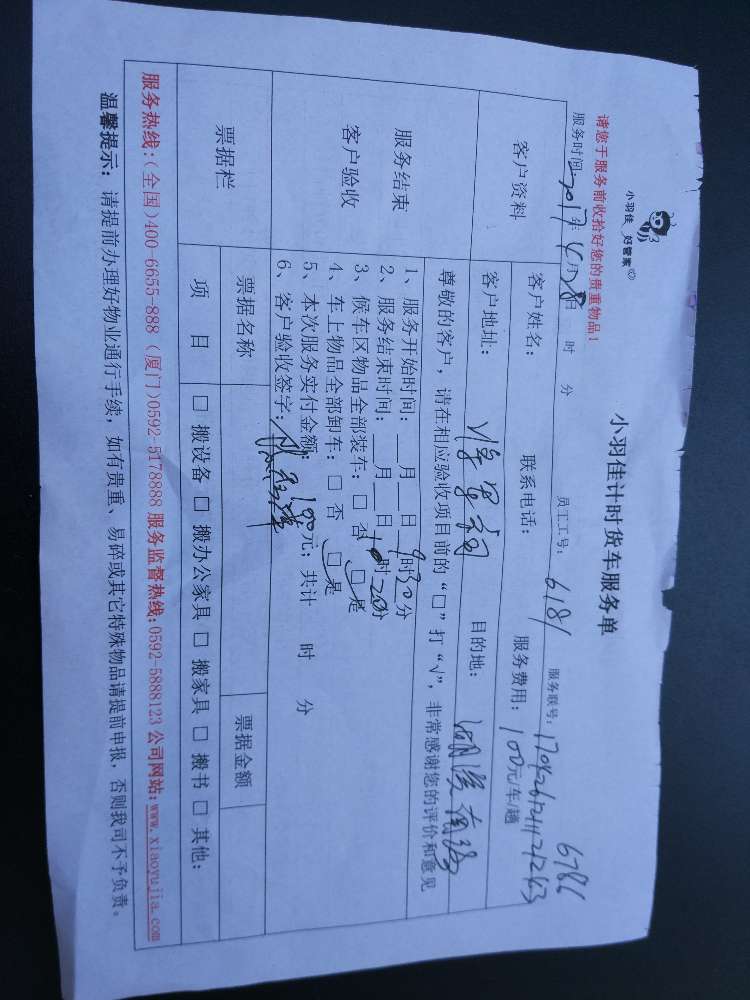 小羽佳 好管家
小羽佳计时货车服务单
请您于服务前收拾好您的贵重物品!
6786
服务时间: 2017年4月28日 时 分 员工工号: 6181 服务联号:
客户资料
客户姓名: 联系电话: 服务费用: 100元/车/趟
客户地址: 目的地:
尊敬的客户，请在相应验收项目前的“□”打“√”，非常感谢您的评价和意见
服务结束
客户验收
1、服务开始时间: __月__日 9时30分
2、服务结束时间: __月__日 10时20分
3、候车区物品全部装车: □ 否 □ 是
4、车上物品全部卸车: □ 否 □ 是
5、本次服务实付金额: 100元，共计 时 分
6、客户验收签字:
票据栏
票据名称 票据金额
项 目 □ 搬设备 □ 搬办公家具 □ 搬家具 □ 搬书 □ 其他:
服务热线:(全国)400-6655-888 (厦门)0592-5178888 服务监督热线:0592-5888123 公司网站:www.xiaoyujia.com
温馨提示: 请提前办理好物业通行手续，如有贵重、易碎或其它特殊物品请提前申报，否则我司不予负责。